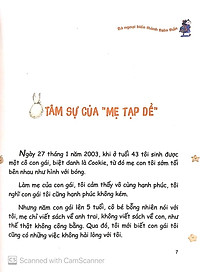 Bà ngoại biến thành thiên thần
TÂM SỰ CỦA "MẸ TẠP DỀ"
Ngày 27 tháng 1 năm 2003, khi ở tuổi 43 tôi sinh được
một cô con gái, biệt danh là Cookie, từ đó mẹ con tôi sớm tối
bên nhau như hình với bóng.
Làm mẹ của con gái, tôi cảm thấy vô cùng hạnh phúc, tôi
nghĩ con gái tôi cũng hạnh phúc không kém.
Nhưng năm con gái lên 5 tuổi, cô bé bỗng nhiên nói với
tôi, mẹ chỉ viết sách về anh trai, không viết sách về con, như
thế thật không công bằng. Qua đó, tôi mới biết con gái tôi
cũng có những việc không hài lòng với tôi.
7
CS Scanned with CamScanner